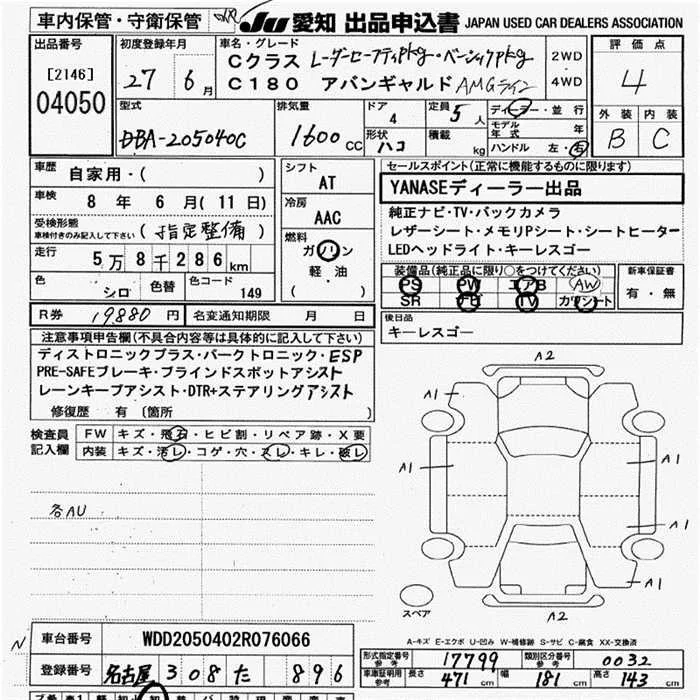 車内保管・守衛保管
JU 愛知 出品申込書 JAPAN USED CAR DEALERS ASSOCIATION
出品番号
[2146]
04050
初度登録年月
27年 6月
車名・グレード
Cクラス レーダーセーフティpkg・ベーシックpkg
C180 アバンギャルド AMGライン
2WD
4WD
評価点
4
外装 内装
B C
型式
DBA-205040C
排気量
1600 CC
ドア
4
形状
ハコ
定員
5人
積載
kg
ディーラー・並行
モデル年式 年
ハンドル 左・右
車歴
自家用・( )
車検
8年 6月(11日)
受検形態
車検付きのみ記入して下さい
(指定整備)
走行
5万8千286km
色
シロ
色替
色コード
149
シフト
AT
冷房
AAC
燃料
ガソリン
軽・油
( )
セールスポイント(正常に機能するものに限ります)
YANASEディーラー出品
純正ナビ・TV・バックカメラ
レザーシート・メモリPシート・シートヒーター
LEDヘッドライト・キーレスゴー
装備品(純正品に限り○をつけてください)
PS PW エアB AW
SR ナビ TV カワシート
新車保証書
有・無
R券 19880円
名変通知期限 月 日
後日品
キーレスゴー
注意事項申告欄(不具合内容等は具体的に記入して下さい)
ディストロニックプラス・パークトロニック・ESP
PRE-SAFEブレーキ・ブラインドスポットアシスト
レーンキープアシスト・DTR+ステアリングアシスト
修復歴 有 〔箇所 〕
検査員記入欄
FW キズ・飛石・ヒビ割・リペア跡・X要
内装 キズ・汚レ・コゲ・穴・スレ・キレ・破レ
各AU
A2
A1
A1
A1
A1
A1
A2
スペア
A-キズ E-エクボ U-凹み W-補修跡 S-サビ C-腐食 XX-交換済
N
車台番号 WDD2050402R076066
登録番号 名古屋 308 た 896
型式指定番号参考 17799
類別区分番号参考 0032
車庫証明用参考 長さ 471cm 幅 181cm 高さ 143cm